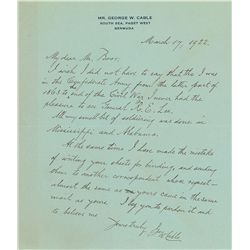 MR. GEORGE W. CABLE
SOUTH SEA, PAGET WEST
BERMUDA
March 17, 1922.
My dear Mr. Boos:
I wish I did not have to say that tho I was
in the Confederate Army from the latter part of
1863 to the end of the Civil War I never had the
pleasure to see General R. E. Lee.
All my small bit of soldiering was done in
Mississippi and Alabama.
At the same time I have made the mistake
of writing your sheets for binding, and sending
them to another correspondent whose request
almost the same as yours came in the same
mail as yours. I beg you to pardon it and
to believe me
Yours truly,
G W Cable